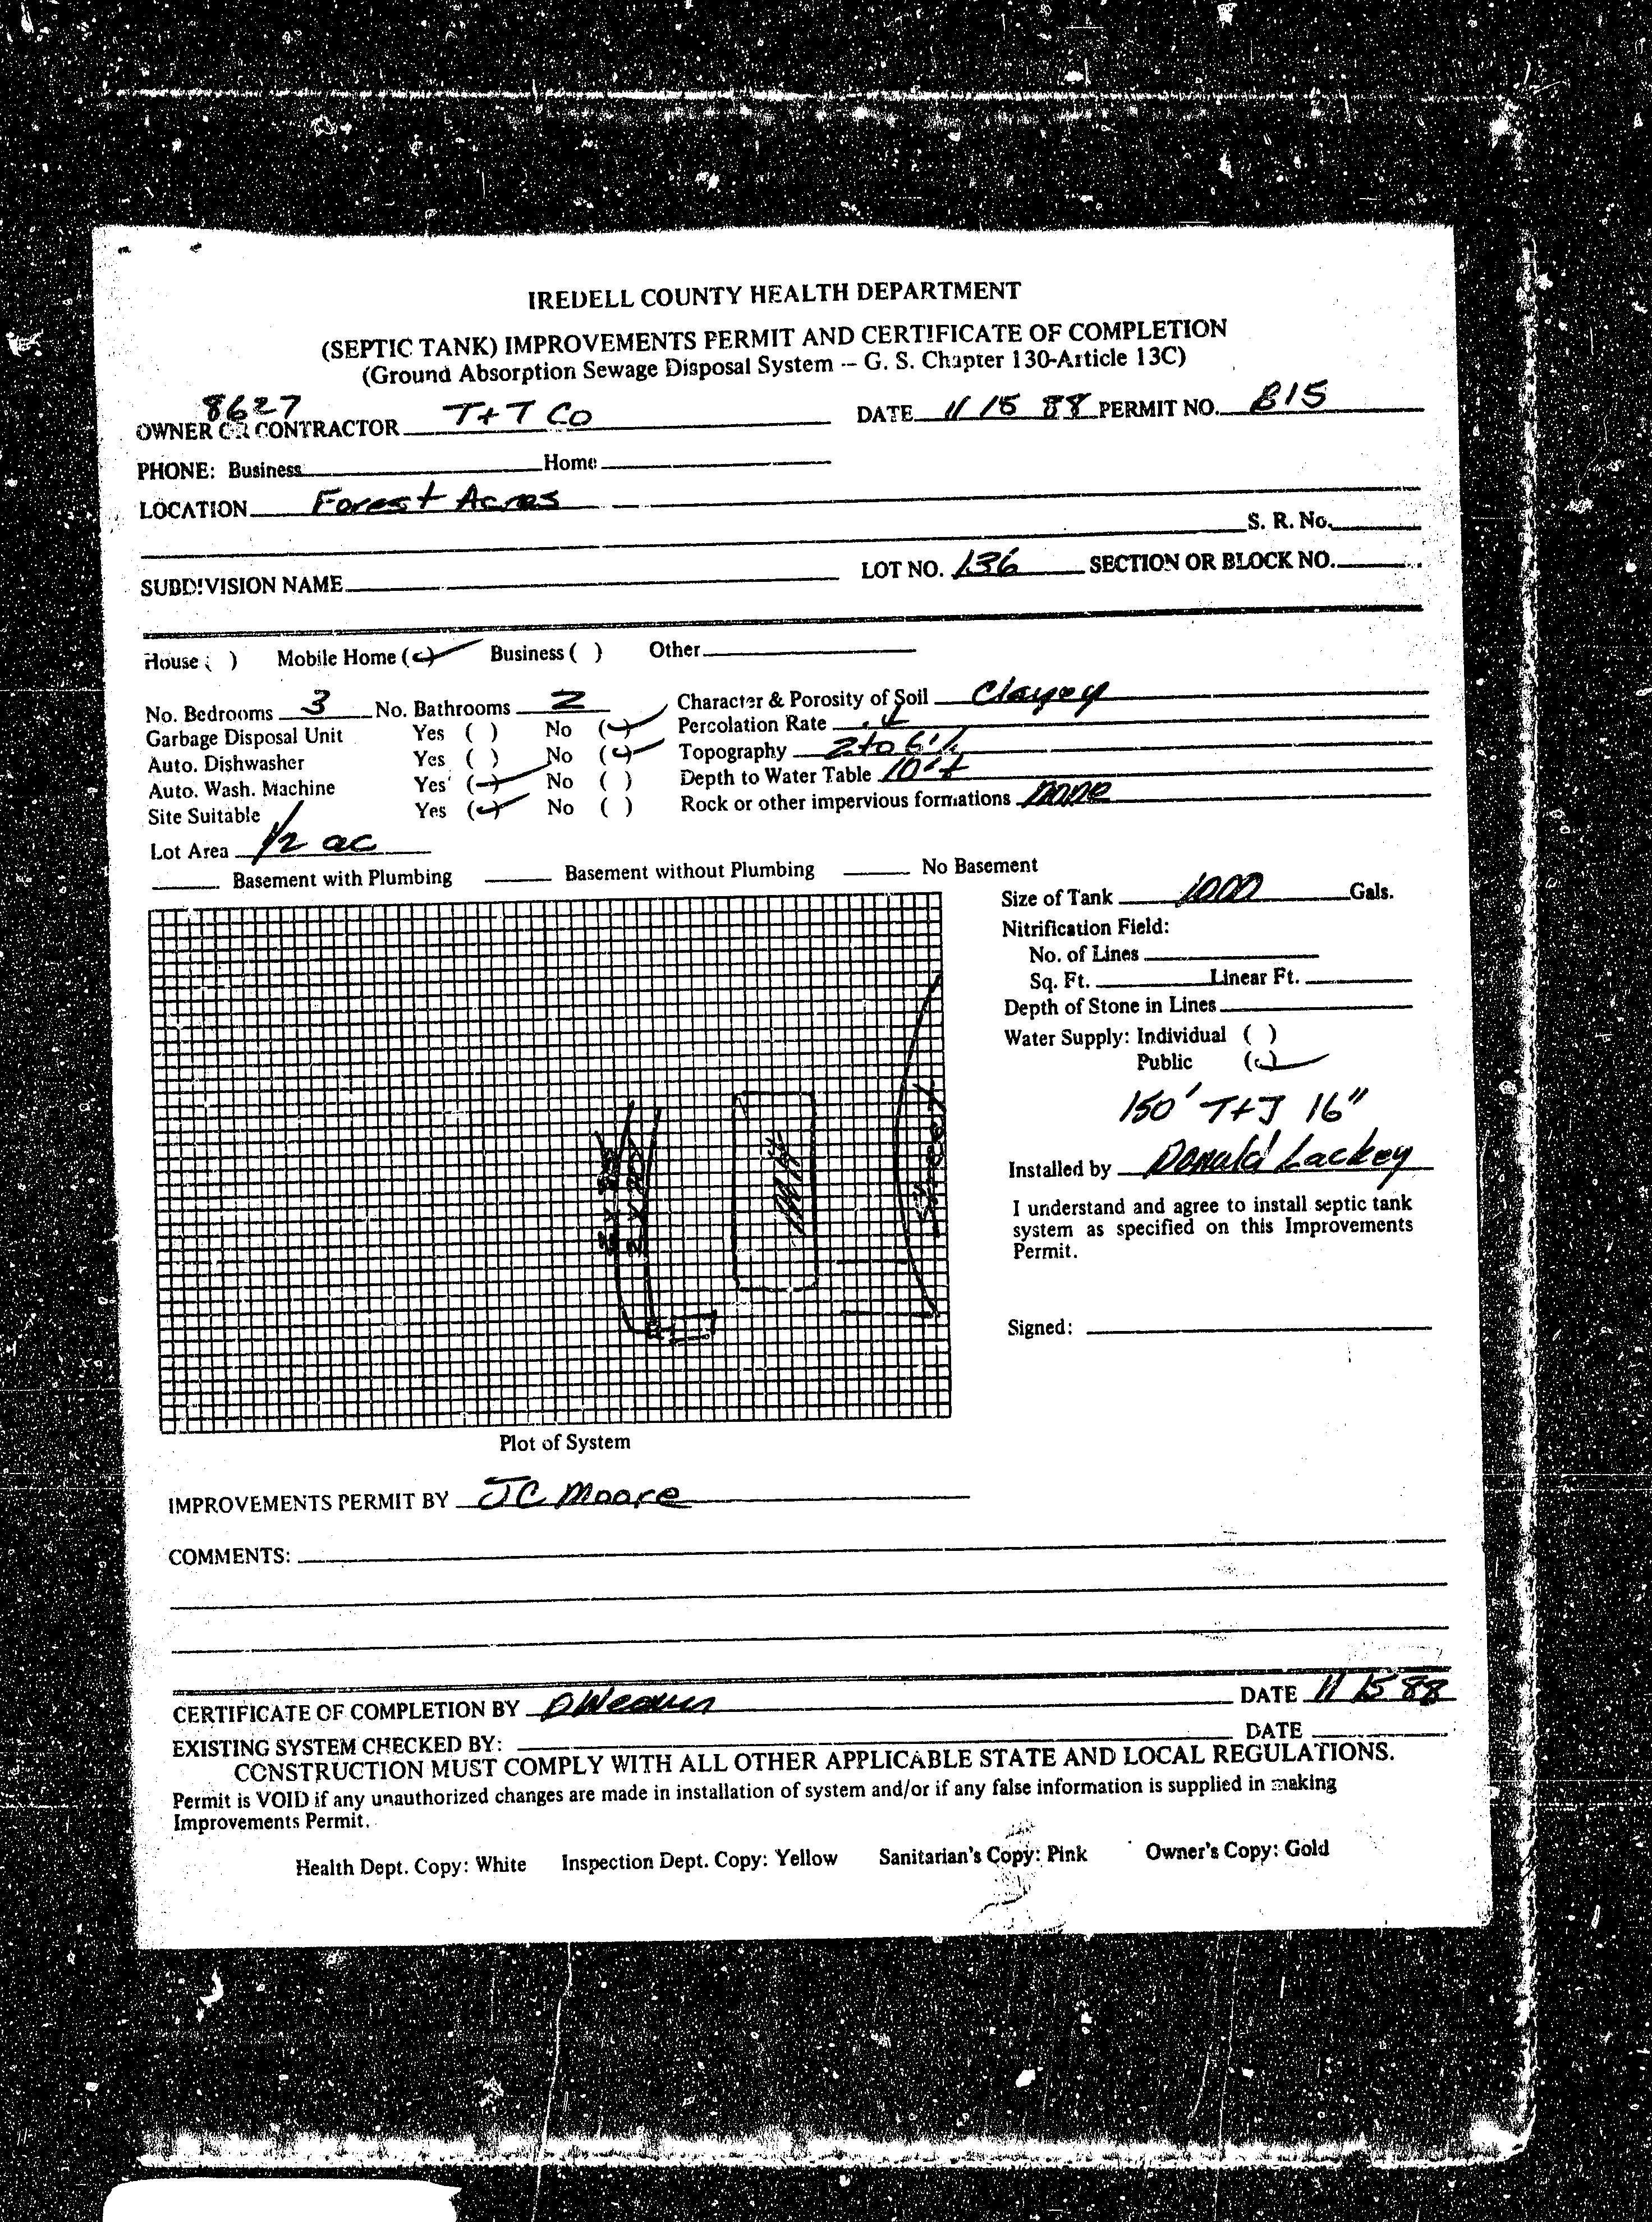 IREDELL COUNTY HEALTH DEPARTMENT
(SEPTIC TANK) IMPROVEMENTS PERMIT AND CERTIFICATE OF COMPLETION
(Ground Absorption Sewage Disposal System -- G. S. Chapter 130-Article 13C)
8627
OWNER OR CONTRACTOR T+T Co DATE 11 15 88 PERMIT NO. B15
PHONE: Business Home
LOCATION Forest Acres
S. R. No.
SUBDIVISION NAME LOT NO. 136 SECTION OR BLOCK NO.
House ( ) Mobile Home ( ) Business ( ) Other
No. Bedrooms 3 No. Bathrooms 2 Character & Porosity of Soil Clayey
Garbage Disposal Unit Yes ( ) No ( ) Percolation Rate
Auto. Dishwasher Yes ( ) No ( ) Topography 2 to 6%
Auto. Wash. Machine Yes ( ) No ( ) Depth to Water Table 10'+
Site Suitable Yes ( ) No ( ) Rock or other impervious formations none
Lot Area 1/2 ac
Basement with Plumbing Basement without Plumbing No Basement
Size of Tank 1000 Gals.
Nitrification Field:
No. of Lines
Sq. Ft. Linear Ft.
Depth of Stone in Lines
Water Supply: Individual ( )
Public ( )
150' T+J 16"
Installed by Donald Lackey
I understand and agree to install septic tank
system as specified on this Improvements
Permit.
Signed:
Street
Plot of System
IMPROVEMENTS PERMIT BY JC Moore
COMMENTS:
CERTIFICATE OF COMPLETION BY DWeaver DATE 11 15 88
EXISTING SYSTEM CHECKED BY: DATE
CONSTRUCTION MUST COMPLY WITH ALL OTHER APPLICABLE STATE AND LOCAL REGULATIONS.
Permit is VOID if any unauthorized changes are made in installation of system and/or if any false information is supplied in making
Improvements Permit.
Health Dept. Copy: White Inspection Dept. Copy: Yellow Sanitarian's Copy: Pink Owner's Copy: Gold